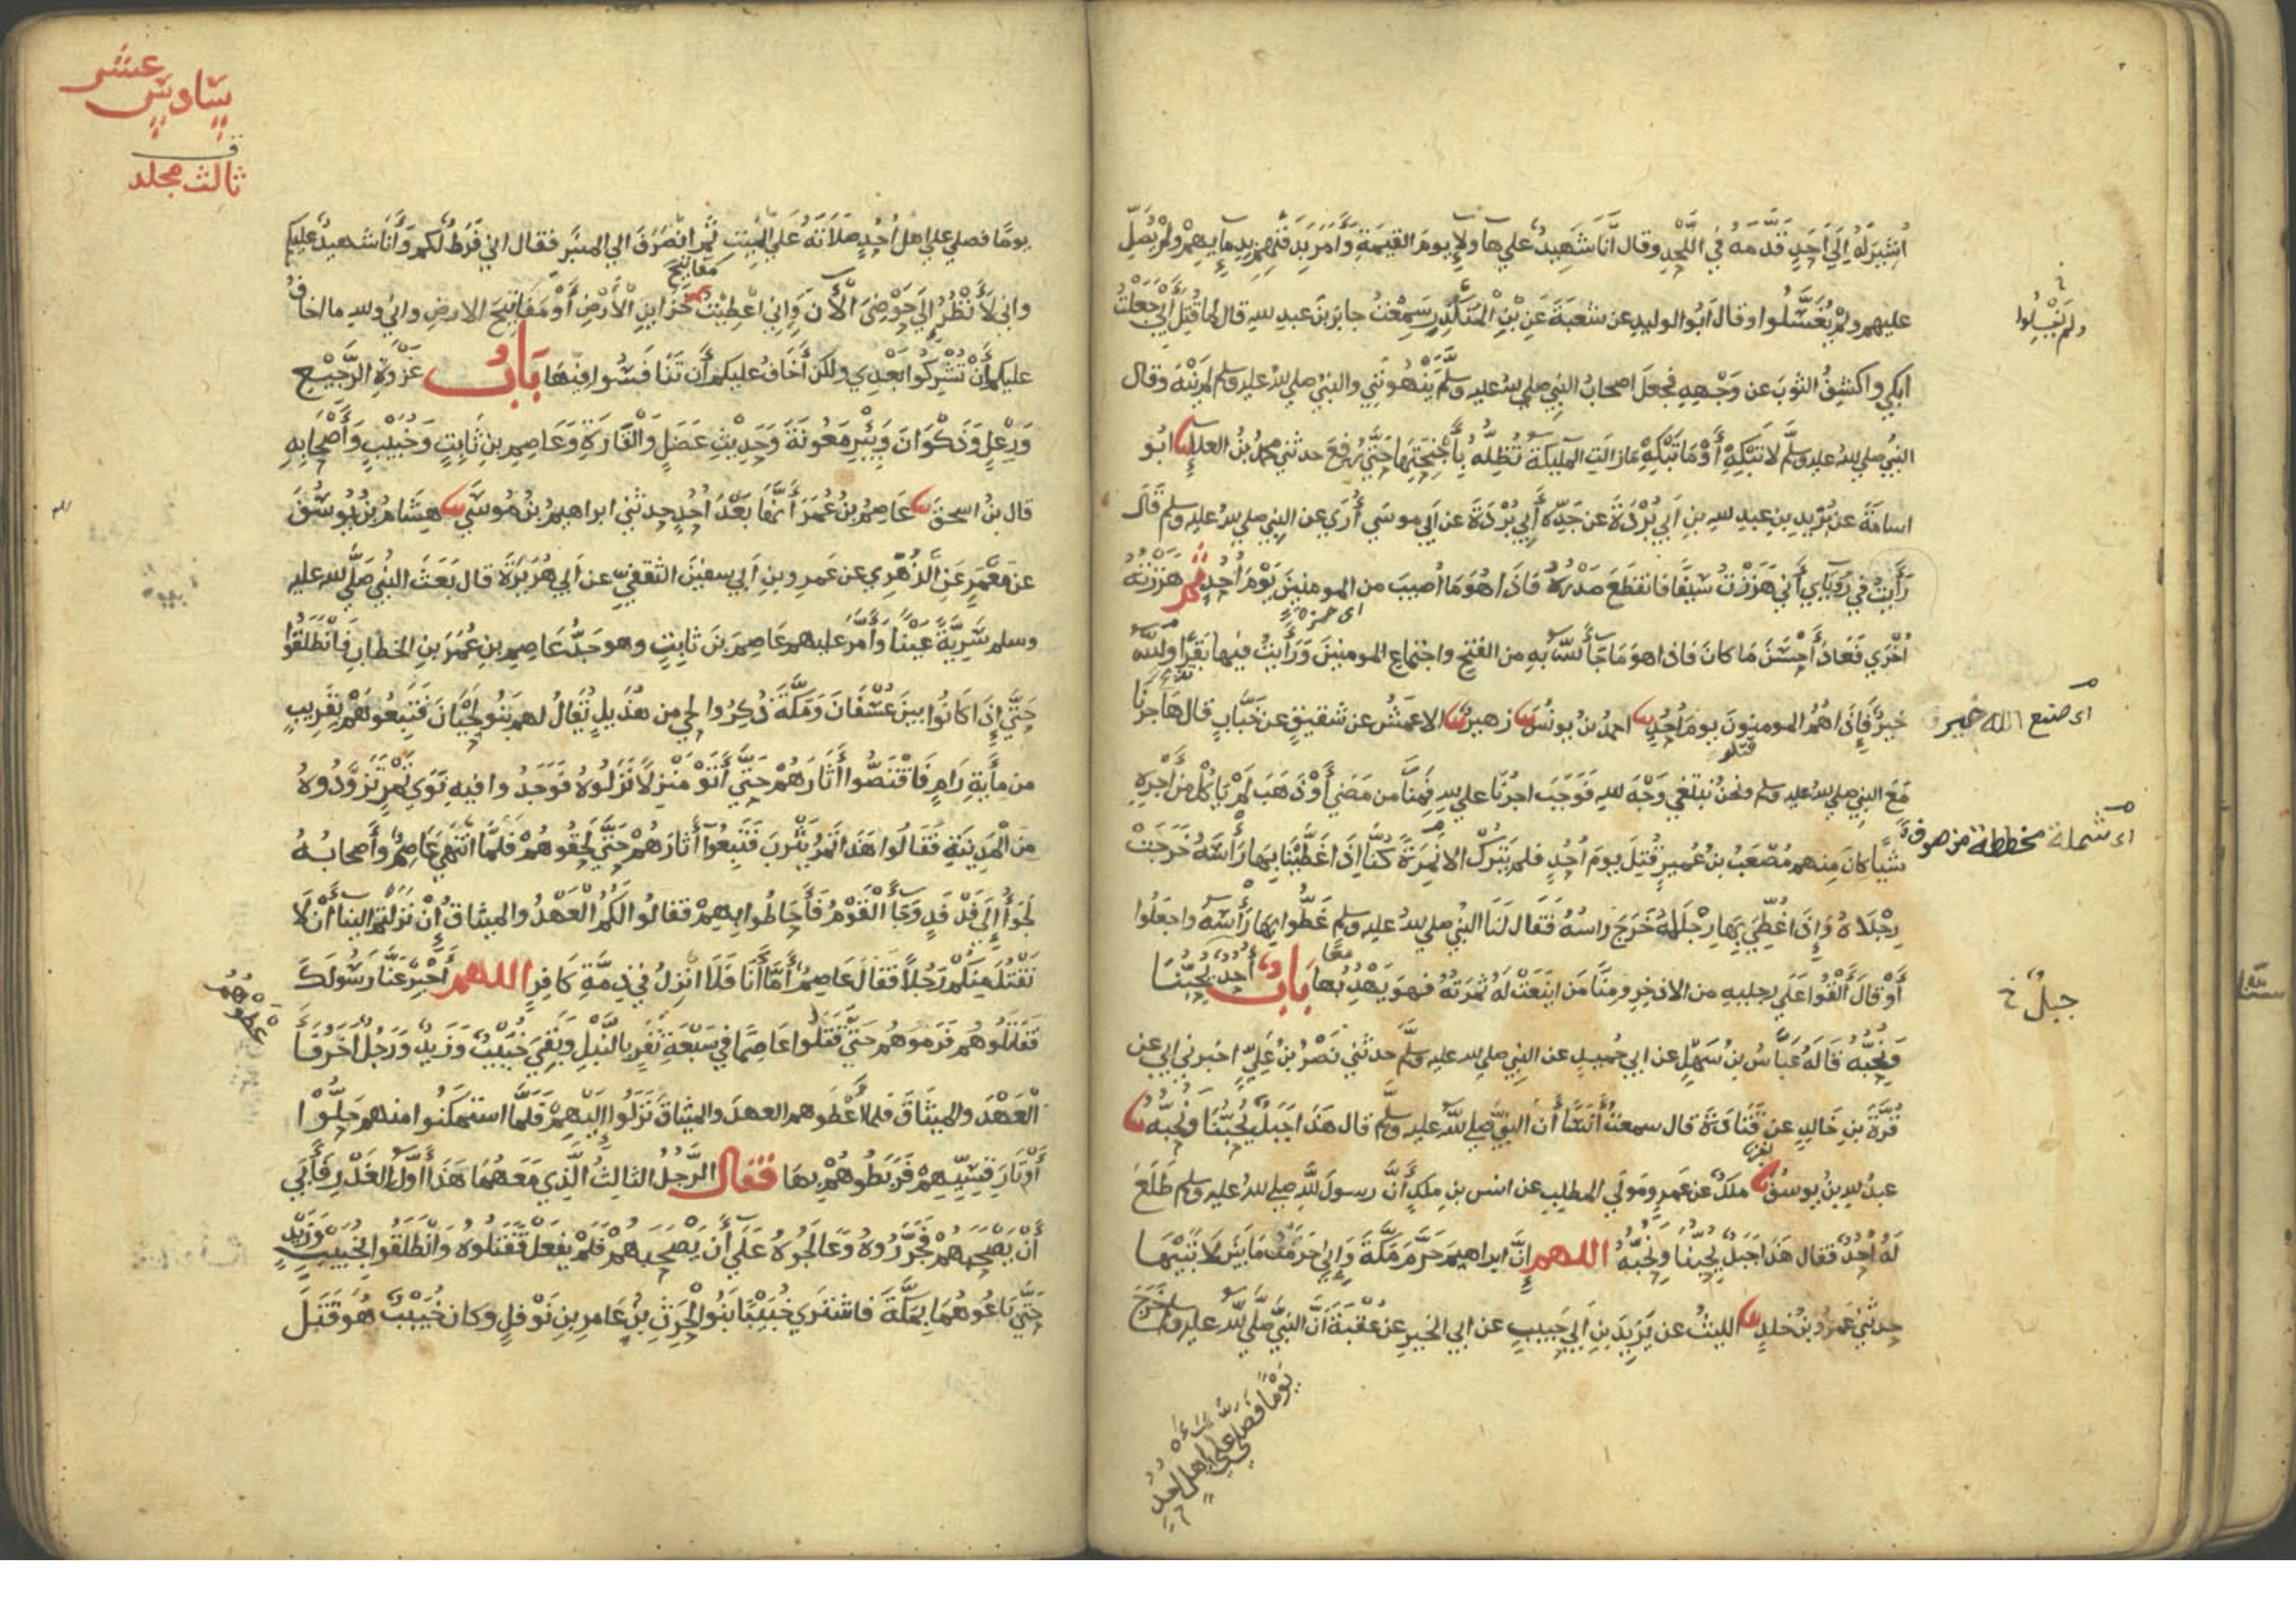 أُشِيرَ لَهُ إِلَى أَحَدٍ قَدَّمَهُ فِي اللَّحْدِ وقال أَنَا شَهِيدٌ على هاولإ يومَ القيمَةِ وَأَمَرَ بِدَفْنِهِمْ بِدِمَآيِهِمْ ولَمْ يُصَلِّ
عليهم ولَمْ يُغَسَّلُوا وقال أَبُو الوليدِ عن شعبَةَ عَنْ بْنِ الْمُنْكَدِرِ سَمِعْتُ جابرَ بنَ عبدِ اللهِ قال لمَا قُتِلَ أَبِي جَعَلْتُ
ولم يَغْسِلُوا
خ
أبكي واكشِفُ الثوبَ عن وَجْهِهِ فجعلَ اصحابُ النبيِ صلى اللهُ عليه وسلَّمَ يَنْهَوْنَنِي والنبيُ صلى اللهُ عليه وسلم لم يَنْهَهُ وقال
النبيُ صلى اللهُ عليه وسلَّم لا تَبْكِهِ أَوْ مَا تَبْكِهِ مازالتِ المليكةُ تُظِلُّهُ بِأَجْنِحَتِهَا حَتَّى رُفِعَ حدثني محمدُ بنُ العلا نا ابُو
اسامَةَ عن بُرَيدِ بنِ عبدِ اللهِ بنِ أبي بُرْدَةَ عن جَدِّه أَبِي بُرْدَةَ عن ابي موسَي أُرَي عن النبيِ صلي اللهُ عليه وسلم قَالَ
رَأَيتُ في رُوْيَاي أَنِّي هَزَزْتُ سَيْفًا فانقطَعَ صَدْرُهُ فَاذَا هُوَ مَا أُصيبَ من المومنينَ يَوْمَ أُحُدٍ ثمَّ هَزَزْتُهُ
أُخْرَي فَعَادَ أَحْسَنَ مَا كانَ فاذا هوَ مَا جَآ اللهُ بهِ من الفتحِ واجتماعِ المومنينَ وَرَأَيتُ فيها بَقَرًا واللهُ
اى حمزه
خيرٌ فَإِذَا هُمُ المومنونَ يومَ أُحُدٍ نا احمدُ بنُ يونُسَ نا زهيرٌ نا الاعمَشُ عن شقيقٍ عن خَبَّابٍ قال هَاجَرْنَا
اى صنع الله خير
مَعَ النبيِ صلى اللهُ عليه وسلم ونحنُ نبتغي وَجْهَ اللهِ فَوَجَبَ اجْرُنَا على اللهِ فَمِنَّا من مَضَي أَوْ ذَهَبَ لَمْ يَاكُلْ مِنْ أَجْرِهِ
شيًا كانَ مِنهم مُصْعَبُ بنُ عُمَيرٍ قُتِلَ يومَ أُحُدٍ فلم يَتْرُكْ الا نَمِرَةً كُنَّا إِذَا غَطَّيْنَا بِهَا رَأْسَهُ خَرَجَتْ
اى شملة مخططة من صوف
رِجْلَاهُ وَإِذَا غُطِّيَ بِهَا رِجْلَاهُ خَرَجَ رَاسُهُ فَقَال لَنَا النبيُ صلي اللهُ عليه وسلم غَطُّوا بِهَا رَأْسَهُ واجعَلُوا
أَوْ قالَ أَلْقُوا عَلَى رِجليهِ من الاذخرِ ومِنَّا مَن اينَعَتْ لَهُ ثَمَرَتُهُ فهوَ يَهْدِبُهَا بَابٌ أُحُدٌ يُحِبُّنَا
معا
جبلٌ خ
وَنُحِبُّهُ قَالَهُ عَبَّاسُ بنُ سَهْلٍ عن ابي حُميدٍ عن النبيِ صلى الله عليه وسلَّم حدثني نَصْرُ بنُ عَلِيٍّ اخبرني ابي عن
قُرَّةَ بنِ خَالِدٍ عن قَتَادَةَ قال سمعتُ أَنَسًا أَنَّ النبيَّ صلى اللهُ عليه وسلَّم قال هَذَا جَبَلٌ يُحِبُّنَا وَنُحِبُّهُ نا
عبدُ اللهِ بنُ يوسُفَ نا ملكٌ عن عَمرٍو مَولَي المطلبِ عن انس بنِ ملكٍ أَنَّ رسولَ اللهِ صلى اللهُ عليه وسلم طَلَعَ
لَهُ أُحُدٌ فقال هَذَا جَبَلٌ يُحِبُّنَا وَنُحِبُّهُ اللهم إِنَّ ابراهيمَ حَرَّمَ مَكَّةَ وَإِنِّي حَرَّمْتُ مَا بَيْنَ لَابَتَيْهَا
حدثني عَمْرُو بنُ خلدٍ نا الليثُ عن يَزِيدَ بنِ أَبِي حَبِيبٍ عن ابي الخيرِ عن عُقْبَةَ أَنَّ النبيَّ صلَّى اللهُ عليه وسلم خَرَجَ
يَوْمًا فصلى على اهلِ أُحُدٍ
سادس عشر
في
ثالث مجلد
يومًا فصلي على اهلِ أُحُدٍ صَلَاتَهُ عَلَى الْمَيِّتِ ثُمَّ انْصَرَفَ الي المنبَرِ فقال اني فَرَطٌ لكم وَأَنَا شهيدٌ عليكم
واني لَأَنْظُرُ إِلَى حَوْضِيَ الْآنَ وَإِنِّي أُعْطِيْتُ خَزَاينَ الْأَرْضِ أَوْ مَفَاتِيحَ الارضِ واني واللهِ ما اخافُ
مفاتيح
عليكم أَنْ تُشْرِكُوا بَعْدِي ولكن أَخَافُ عليكم أَن تَنَافَسُوا فِيْهَا بَابُ غَزْوَةِ الرَّجِيْعِ
وَرِعْلٍ وَذَكْوَانَ وَبِئْرِ مَعُونَةَ وَحَدِيْثِ عَضَلٍ وَالْقَارَةِ وَعَاصِمِ بنِ ثَابِتٍ وَخُبَيْبٍ وَأَصْحَابِهِ
قال بنُ اسحقَ نا عَاصِمُ بنُ عُمَرَ أَنَّهَا بَعْدَ أُحُدٍ حدثني ابراهيمُ بنُ مُوسَي نا هِشَامُ بنُ يُوسُفَ
عن مَعْمَرٍ عَنِ الزُّهْرِي عن عَمرِو بنِ أبي سفينَ الثقفيِ عن أبي هُرَيْرَةَ قال بَعَثَ النبيُ صلَّى اللهُ عليه
وسلم سَرِيَّةً عَيْنًا وَأَمَّرَ عليهم عَاصِمَ بنَ ثابتٍ وهو جَدُّ عَاصِمِ بنِ عُمَرَ بنِ الخطابِ فَانْطَلَقُوا
حَتَّى إِذَا كَانُوا بينَ عُسْفَانَ وَمَكَّةَ ذُكِرُوا لحي من هُذَيلٍ يُقَالُ لهم بَنُو لَحْيَانَ فَتَبِعُوهُمْ بِقَرِيبٍ
من مِأيَةِ رَامٍ فَاقْتَصُّوا أَثَارَهُمْ حَتَّى أَتَوْ مَنْزِلًا نَزَلُوهُ فَوَجَدُوا فيهِ نَوَي تَمْرٍ تَزَوَّدُوهُ
مِنَ الْمَدِينَةِ فَقَالُوا هَذَا تَمْرُ يَثْرِبَ فَتَبِعُوا أَثَارَهُمْ حَتَّى لَحِقُوهُمْ فَلَمَّا انْتَهَي عَاصِمٌ وأَصحابُهُ
لَجَؤُا إِلَى فَدْفَدٍ وَجَآ الْقَوْمُ فَأَحَاطُوا بِهِمْ فقالُوا لَكُمُ الْعَهْدُ والميثاقُ إِنْ نَزَلْتُمْ الينا أَنْ لَا
نَقْتُلَ مِنكُمْ رَجُلًا فَقَالَ عَاصِمٌ أَمَّا أَنَا فَلَا أَنْزِلُ في ذِمَّةِ كَافِرٍ اللهم أَخْبِرْ عَنَّا رَسُولَكَ
فَقَتَلُوهُم فَرَمَوهُم حَتَّى قَتَلُوا عَاصِمًا في سَبْعَةِ نَفَرٍ بالنَّبْلِ وَبَقِيَ خُبَيْبٌ وَزَيدٌ وَرَجُلٌ آخَرُ فَأَعْطَوْهُمُ
الْعَهْدَ والميثَاقَ فلما أَعْطَوهم العهدَ والميثاقَ نَزَلُوا إِلَيْهِمْ فَلَمَّا استَمكَنُوا منهم حَلُّوْا
أَوْتَارَ قِسِيِّهِمْ فَرَبَطُوهُمْ بِهَا فَقَال الرَّجُلُ الثالثُ الَّذِي مَعَهُمَا هَذَا أَوَّلُ الْغَدْرِ فَأَبَي
أَنْ يَصْحَبَهُمْ فَجَرَّرُوهُ وعَالَجُوهُ عَلَى أَن يَصْحَبَهُمْ فَلَمْ يَفْعَلْ فَقَتَلُوهُ وَانْطَلَقُوا بِخُبَيْبٍ وَزَيْدٍ
حَتَّى بَاعُوهُمَا بِمَكَّةَ فاشتَرَي خُبَيْبًا بَنُوا الْحَرِثِ بْنِ عَامِرِ بنِ نَوْفَلٍ وكان خُبَيْبٌ هُوَ قَتَلَ